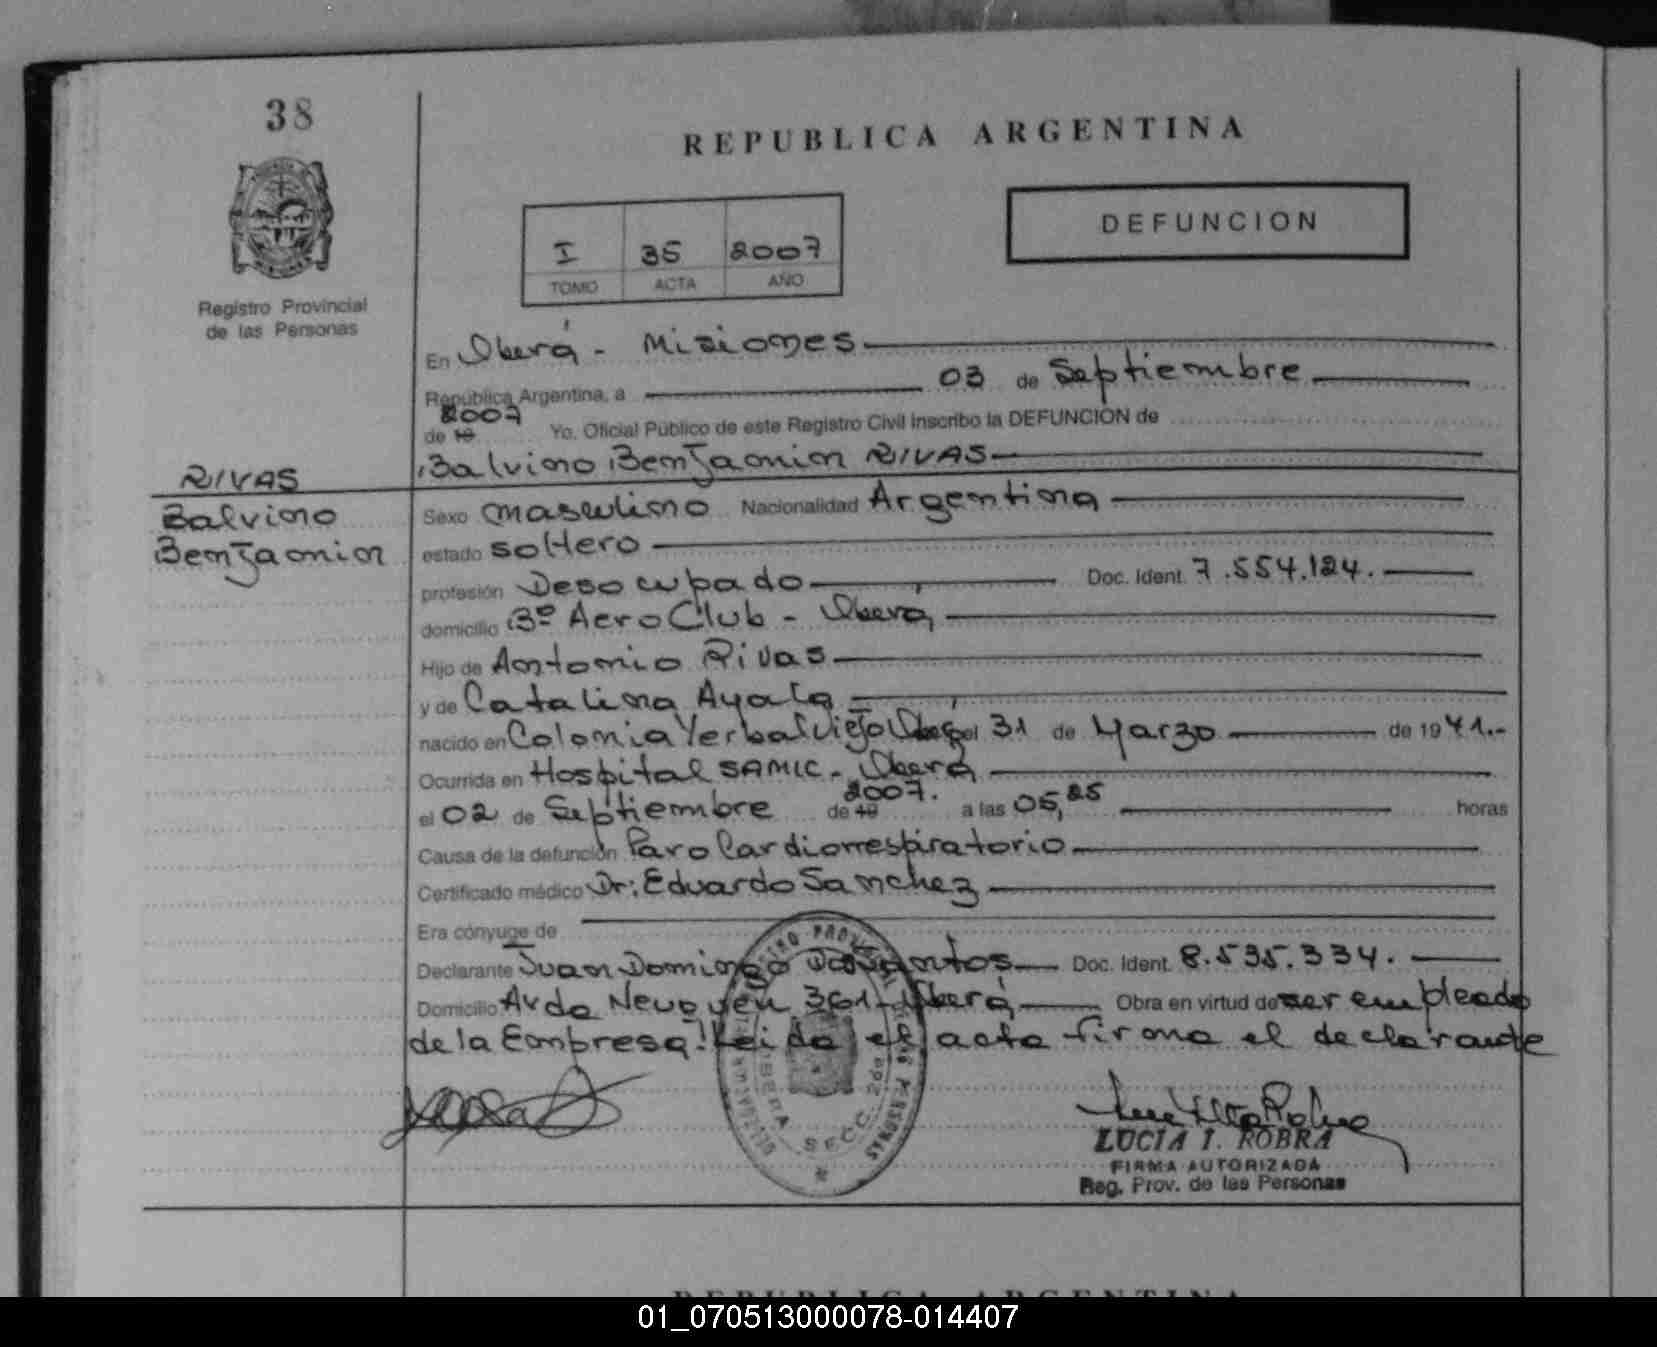 38
REPUBLICA ARGENTINA
DEFUNCION
I 35 2007
TOMO ACTA AÑO
Registro Provincial
de las Personas
En Oberá - Misiones
República Argentina, a 03 de Septiembre
2007
de 19 Yo. Oficial Público de este Registro Civil inscribo la DEFUNCION de
Balvino Benjamin RIVAS
RIVAS
Balvino
Benjamin
Sexo masculino Nacionalidad Argentina
estado soltero
profesión Desocupado Doc. Ident. 7.554.124.
domicilio Bº AeroClub - Oberá,
Hijo de Antonio Rivas
y de Catalina Ayala
nacido en Colonia Yerbal viejo Oberá el 31 de Marzo de 1941.-
Ocurrida en Hospital SAMIC - Oberá
el 02 de Septiembre de 19 2007. a las 05,25 horas
Causa de la defunción Paro Cardiorrespiratorio
Certificado médico Dr: Eduardo Sanchez
Era cónyuge de
Declarante Juan Domingo Dos Santos Doc. Ident. 8.535.334.
Domicilio Avda Neuquén 361 - Oberá Obra en virtud de ser empleado
de la Empresa! Leida el acta firma el declarante
OBERA SECC. 2da
LUCIA I. ROBRA
FIRMA AUTORIZADA
Reg. Prov. de las Personas
REPUBLICA ARGENTINA
01_070513000078-014407